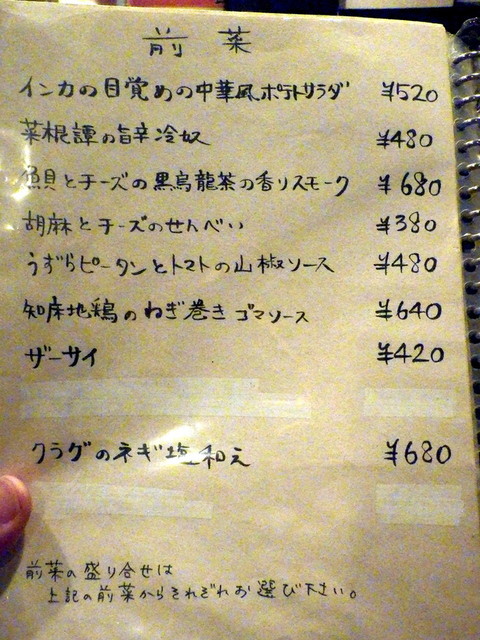 前菜
インカの目覚めの中華風ポテトサラダ ¥520
菜根譚の旨辛冷奴 ¥480
とチーズの黒烏龍茶の香りスモーク ¥680
胡麻とチーズのせんべい ¥380
うずらピータンとトマトの山椒ソース ¥480
知床地鶏のねぎ巻き ゴマソース ¥640
ザーサイ ¥420
クラゲのネギ塩和え ¥680
前菜の盛り合せは
上記の前菜からそれぞれお選び下さい。